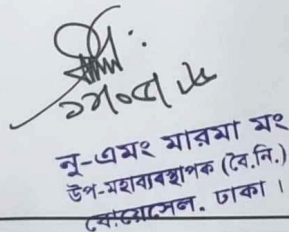 নু-এমং মারমা মং
উপ-মহাব্যবস্থাপক (বৈ.নি.)
বোয়েসেল. ঢাকা ।